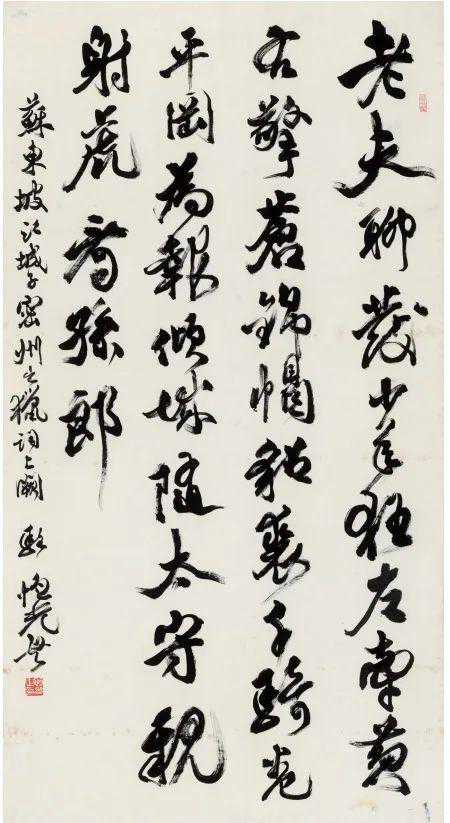 老夫聊發少年狂左牽黃
右擎蒼錦帽貂裘千騎卷
平岡為報傾城隨太守親
射虎看孫郎
蘇東坡江城子密州出獵詞上闋 駱恒光書